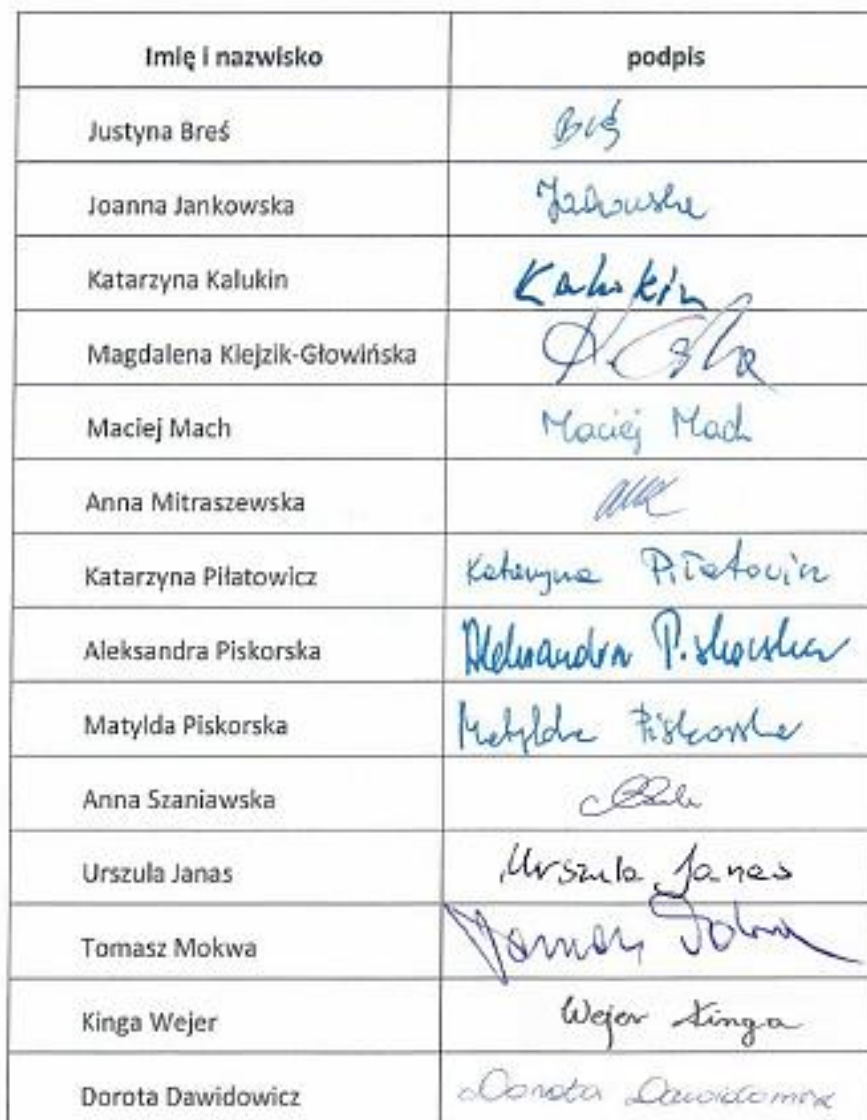 Imię i nazwisko podpis
Justyna Breś Breś
Joanna Jankowska Jankowska
Katarzyna Kalukin Kalukin
Magdalena Kiejzik-Głowińska
Maciej Mach Maciej Mach
Anna Mitraszewska
Katarzyna Piłatowicz Katarzyna Piłatowicz
Aleksandra Piskorska Aleksandra Piskorska
Matylda Piskorska Matylda Piskorska
Anna Szaniawska
Urszula Janas Urszula Janas
Tomasz Mokwa
Kinga Wejer Wejer Kinga
Dorota Dawidowicz Dorota Dawidowicz